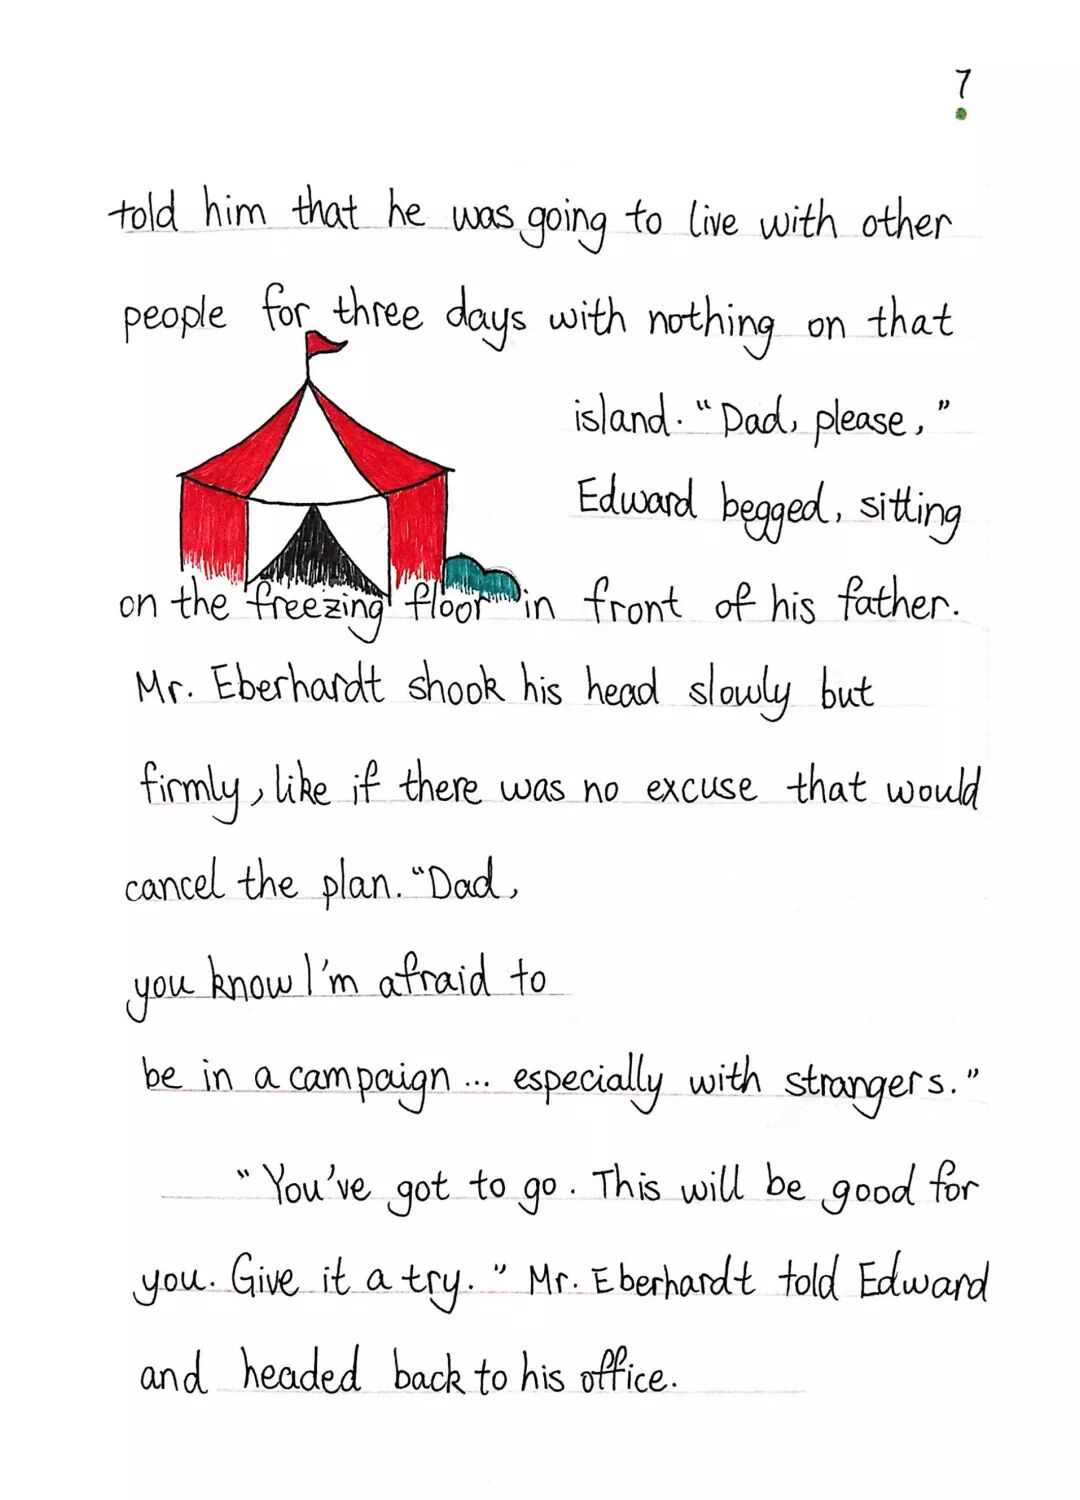 7
told him that he was going to live with other
people for three days with nothing on that
island. "Dad, please,"
Edward begged, sitting
on the freezing floor in front of his father.
Mr. Eberhardt shook his head slowly but
firmly, like if there was no excuse that would
cancel the plan. "Dad,
you know I'm afraid to
be in a campaign ... especially with strangers."
"You've got to go. This will be good for
you. Give it a try." Mr. Eberhardt told Edward
and headed back to his office.